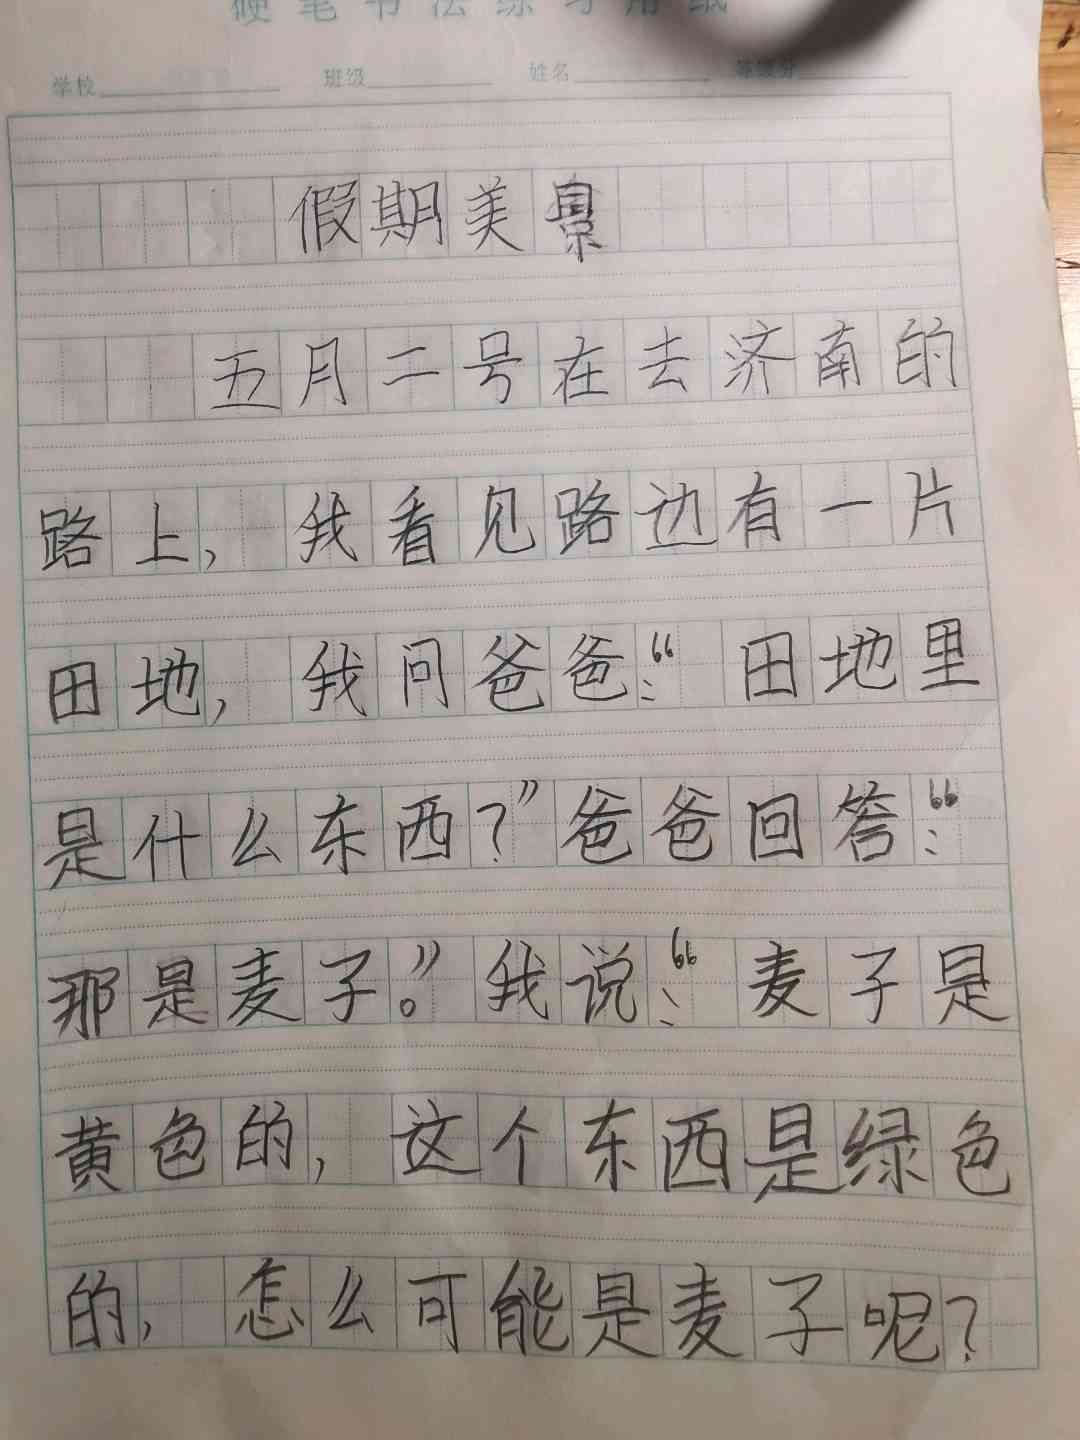 硬笔书法练习用纸
学校 班级 姓名 等级分
假期美景
五月二号在去济南的
路上，我看见路边有一片
田地，我问爸爸：“田地里
是什么东西？”爸爸回答：“
那是麦子。”我说：“麦子是
黄色的，这个东西是绿色
的，怎么可能是麦子呢？